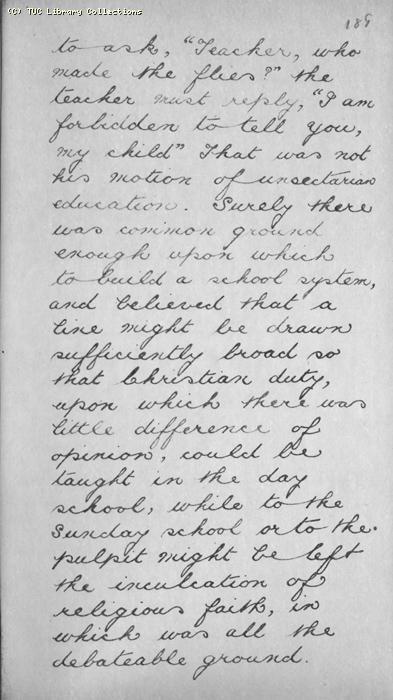 (C) TUC Library Collections
189
to ask, "Teacher, who
made the flies?" the
teacher must reply, "I am
forbidden to tell you,
my child" That was not
his motion of unsectarian
education. Surely there
was common ground
enough upon which
to build a school system,
and believed that a
line might be drawn
sufficiently broad so
that Christian duty,
upon which there was
little difference of
opinion, could be
taught in the day
school, while to the
Sunday school or to the
pulpit might be left
the inculcation of
religious faith, in
which was all the
debateable ground.